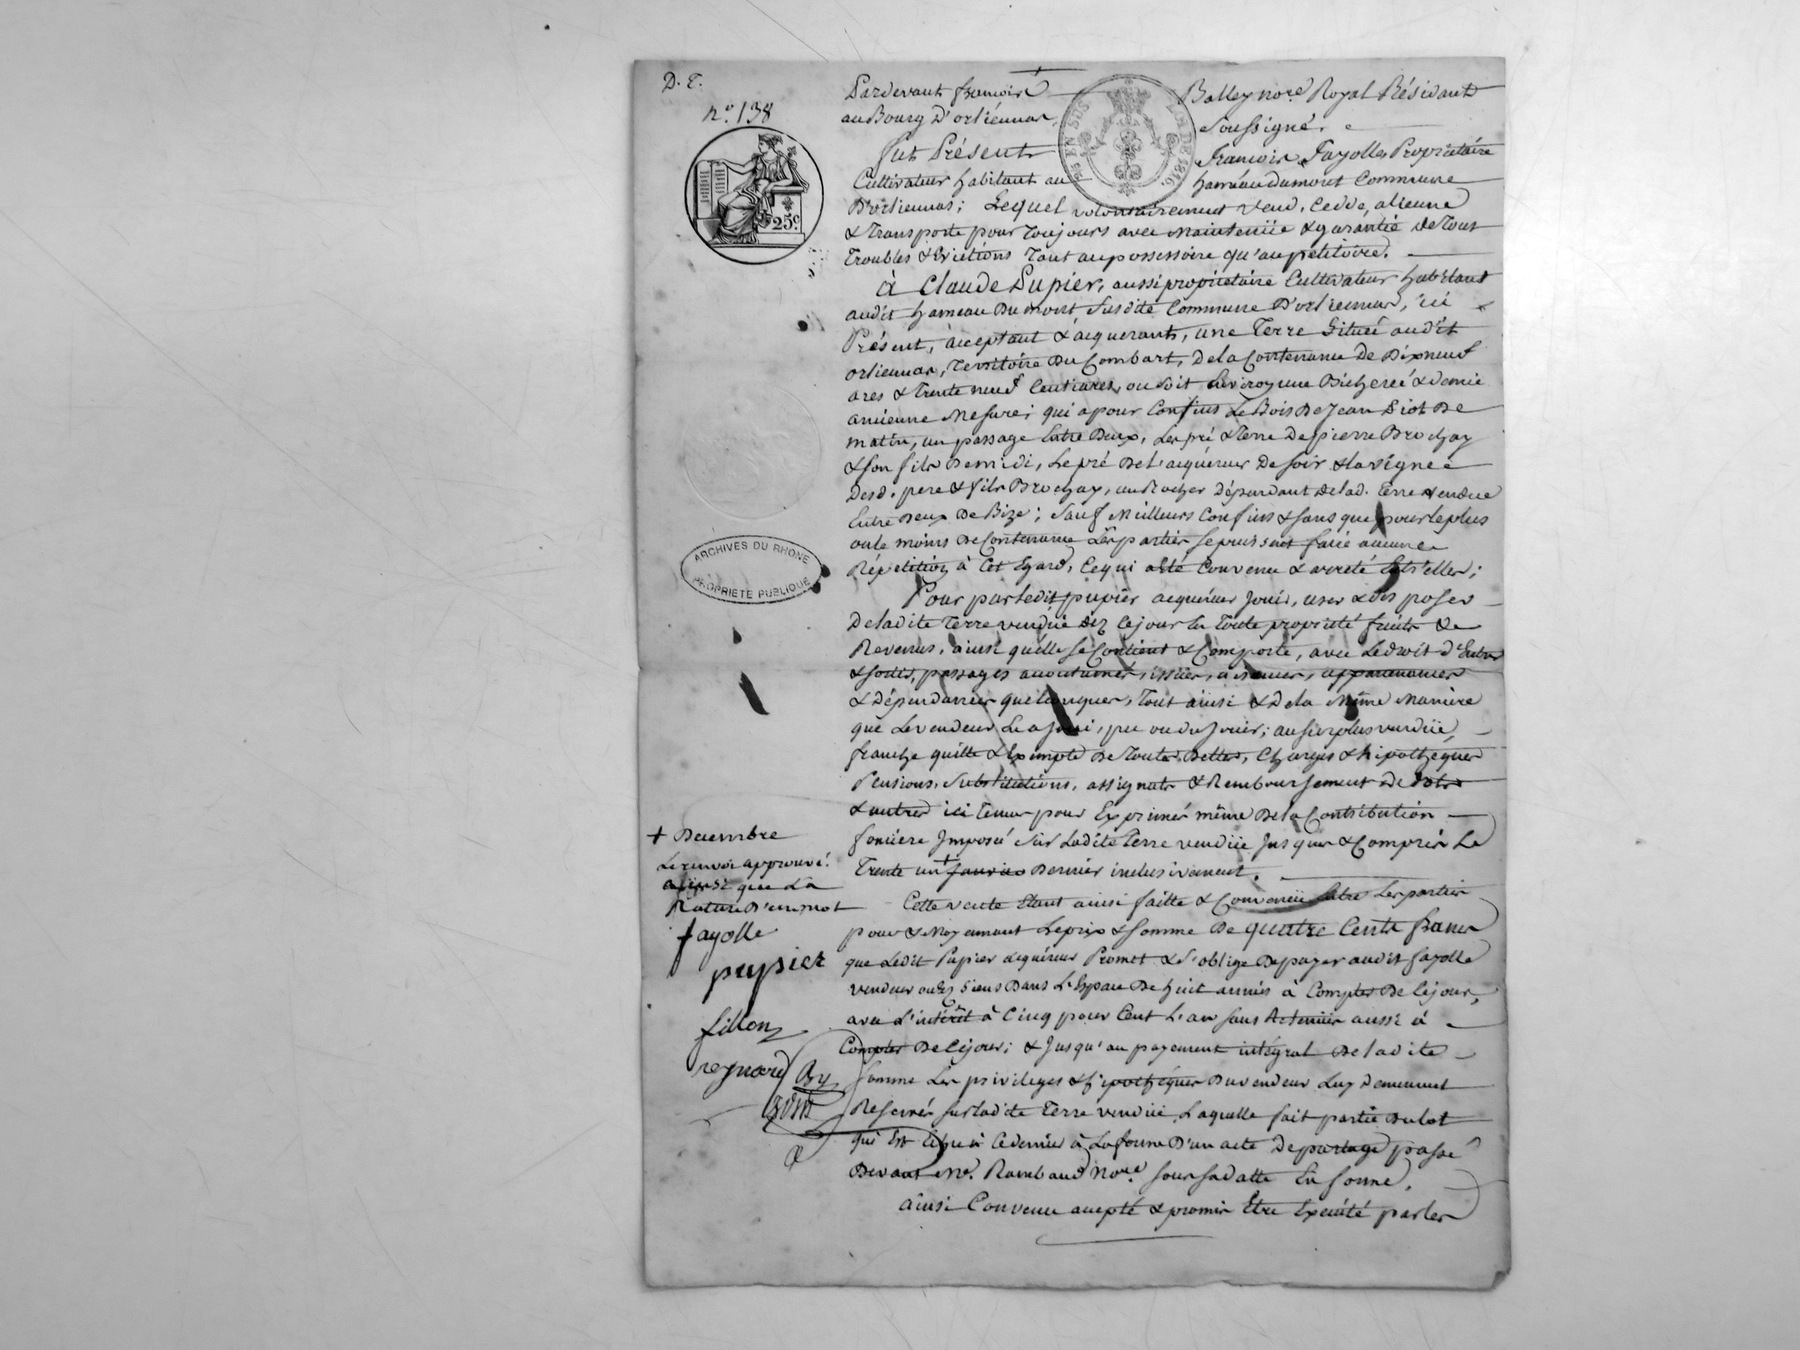 D. T.
n.º 138
25c.
EN SUS
LOI DE 1816
ARCHIVES DU RHONE
PROPRIETE PUBLIQUE
Pardevant françois Balley nore. Royal Résidant
au Bourg D'orliennas, soussigné.
fut Présent françois Fayolle Propriétaire
Cultivateur habitant au hameau dumont Commune
D'orliennas; Lequel volontairement vend, cedde, alienne
& transporte pour toujours avec maintenüe & garantie de tout
troubles & évictions tant au possessoire qu'au pétitoire.
à Claude Pupier, aussi propriétaire Cultivateur habitant
audit hameau Du mont susdite Commune D'orliennas, ici
Présent, acceptant & acquerant, une Terre située audit
orliennas, Territoire Du Combart, De la Contenance de Dixneuf
ares & trente neuf Centiares, ou soit Environ une Bicherée & demie
ancienne Mesure; qui a pour Confins Le Bois De Jean Piot De
matin, un passage Entre Deux, Les pré & terre De pierre Brochay
& son fils De midi, Le pré De l'acquéreur De soir & la vigne
Desd. pere & fils Brochay, un Rocher dépendant de lad. terre vendue
Entre deux De Bize; sauf Meilleurs Confins & sans que pour le plus
ou le moins De Contenance Les parties se puissent faire aucune
Répétition à Cet Egard, Ce qui a été Convenu & arreté Entr'elles;
Pour par ledit pupier acquéreur Jouir, user & dis poser
De ladite terre vendüe Dez Ce jour En toute propriété fruits &
Revenus, ainsi quelle se Contient & Comporte, avec Le droit d'Entrer
& sortis, passages accoutumés, issües, aisances, appartenances
& dépendances quelconques, tout ainsi & De la Même Manière
que Le vendeur Le a Joui, pu ou du Jouir; au surplus vendüe
franche quitte & Exempte De toutes Dettes, Charges & hipothèques
Pensions, Substitutions, assignats & Remboursement de Dots
& autres ici tenus pour Exprimés même De la Contribution
fonciere Imposée sur Ladite terre vendüe Jusques & Compris Le
Trente un + janvier Dernier inclusivement.
Cette vente Etant ainsi faitte & Convenüe Entre Les parties
pour & Moyennant Le prix & somme De quatre Cents francs
que Ledit Pupier acquéreur Promet & s'oblige De payer audit fayolle
vendeur ou Ez siens Dans L'Espace De huit années à Compter De Ce jour,
avec L'intérêt à Cinq pour Cent L'an sans Retenüe aussi à
Compter De Ce jour; & Jusqu'au payement intégral De ladite
somme Les privilèges & hipothèques Du vendeur Luy Demeurent
Reservés sur ladite Terre vendüe, Laquelle fait partie Du lot
qui Est Echu à Ce dernier à La forme D'un acte De partage passé
Devant Me. Rambaud Nore. sous sa datte En forme.
ainsi Convenu accepté & promis Etre Exécuté par les
+ Decembre
Le renvoi approuvé.
ainsi que La
Rature D'un mot
fayolle
pupier
fillon
reynard
By